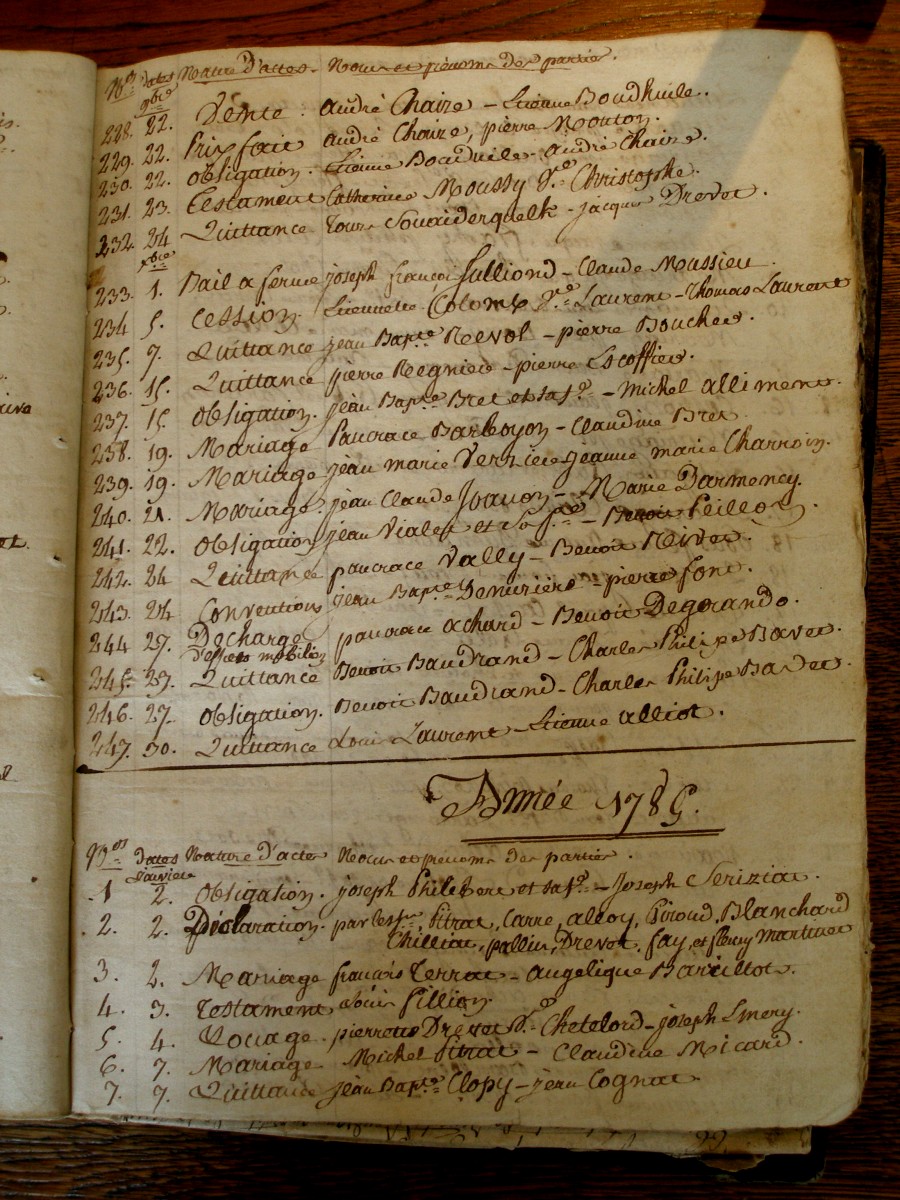 N.os dates Nature d'actes. Noms et prénoms des parties.
9bre
228. 22. Vente. andré Chaize - Etienne Boudhuile.
229. 22. Prix fait andré Chaize, pierre Mouton.
230. 22. obligation. Etienne Boudhuile - andré Chaize.
231. 23. Testament Catherine Moussy v.e Christophe.
232. 24 Quittance - jacques Drevet.
xbre
233. 1. Bail a ferme joseph françois Julliond - Claude Mussieu.
234 5. Cession. Etiennette Colomb v.e Laurent - Thomas Laurent
235. 7. Quittance jean Bap.te Revol - pierre Boucher.
236. 15. Quittance pierre Regnier - pierre Escoffier.
237. 15. obligation. jean Bap.te Bret et sa f.e - Michel alliment.
238. 19. Mariage Pancrace Barboyon - Claudine Bret
239. 19. Mariage jean marie Verziere jeanne marie Charroin.
240. 21. Mariage. jean Claude Jouanon - Marie Darmency.
241. 22. obligation jean Viales et sa f.e - Benoit Peillon.
242. 24 Quittance pancrace Vally - Benoit Nivet.
243. 24 Conventions jean Bap.te Demurière - pierre font.
244 27. Decharge pancrace achard - Benoit Degerando.
d'effets mobiliers
245. 27. Quittance Benoit Baudrand - Charles Philipe Bavet.
246. 27 obligation. Benoit Baudrand - Charles Philipe Bardet.
247. 30. Quittance Louis Laurent - Etienne alliot.
Année 1785.
N.os dates Nature d'actes Noms et prenoms des parties.
Janvier
1 2. obligation. joseph Philibert et sa f.e - Joseph Seriziat.
2. 2. Déclaration. par les s.rs Pitrat, Carre, alloy, Giroud, Blanchard
Chilliat, pallin, Drevet, fay, et fleury Martinet
3. 2. Mariage françois Terrat - angelique Barillot.
4. 3. Testament Louis fillion
5. 4. Louage. pierrette Drevet v.e Chetelord - joseph Emery.
6. 7. Mariage Michel Pitrat - Claudine Micard.
7. 7. Quittance jean Bap.te Clopy - jean Cognat